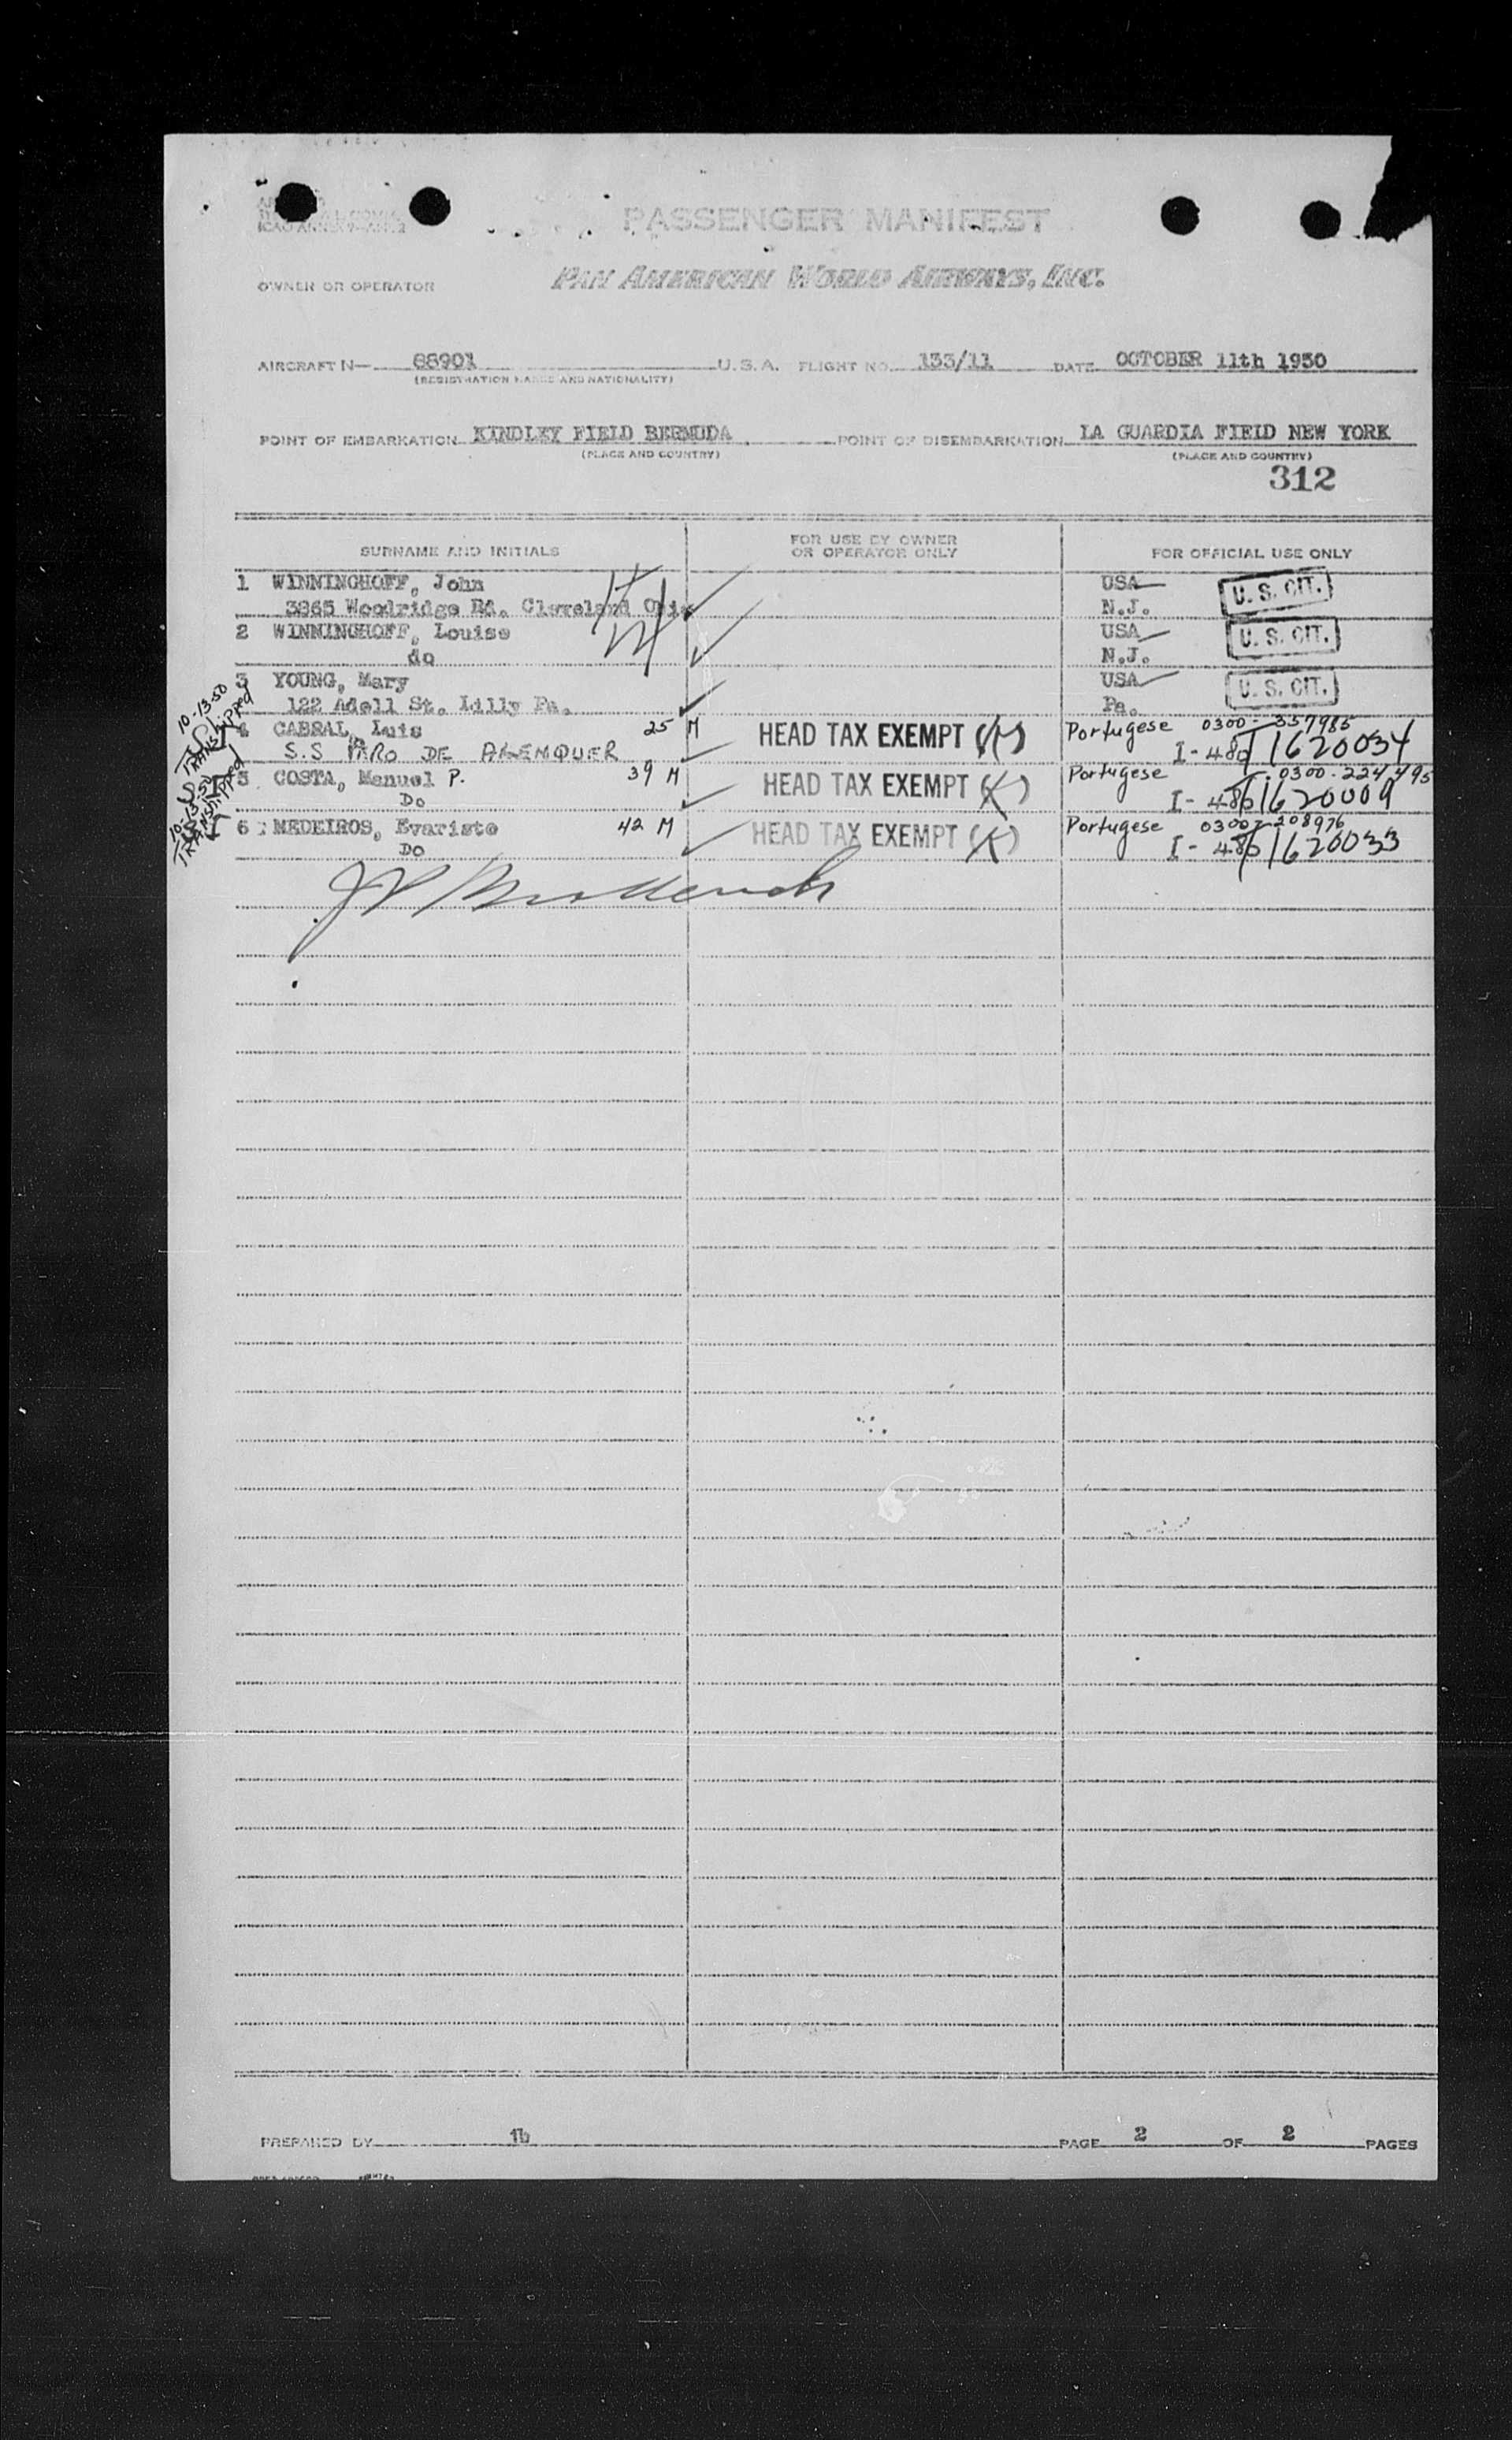 PASSENGER MANIFEST
OWNER OR OPERATOR PAN AMERICAN WORLD AIRWAYS, INC.
AIRCRAFT N— 88901 U.S.A. FLIGHT NO. 133/11 DATE OCTOBER 11th 1950
(REGISTRATION MARKS AND NATIONALITY)
POINT OF EMBARKATION KINDLEY FIELD BERMUDA POINT OF DISEMBARKATION LA GUARDIA FIELD NEW YORK
(PLACE AND COUNTRY) (PLACE AND COUNTRY)
312
SURNAME AND INITIALS FOR USE BY OWNER OR OPERATOR ONLY FOR OFFICIAL USE ONLY
1 WINNINGHOFF, John USA U. S. CIT.
3865 Woodridge Rd. Cleveland Ohio N.J.
2 WINNINGHOFF, Louise USA U. S. CIT.
do N.J.
3 YOUNG, Mary USA U. S. CIT.
122 Adell St. Lilly Pa. Pa.
10-13-50 Transhipped
4 CABRAL, Luis 25 M HEAD TAX EXEMPT Portugese 0300-357985
S.S DE ALENQUER I-480 1620034
5 COSTA, Manuel P. 39 M HEAD TAX EXEMPT Portugese 0300-224,495
Do I-480 1620009
10-13-50 Transhipped
6 MEDEIROS, Evaristo 42 M HEAD TAX EXEMPT Portugese 0300-208976
Do I-480 1620033
PREPARED BY lb PAGE 2 OF 2 PAGES